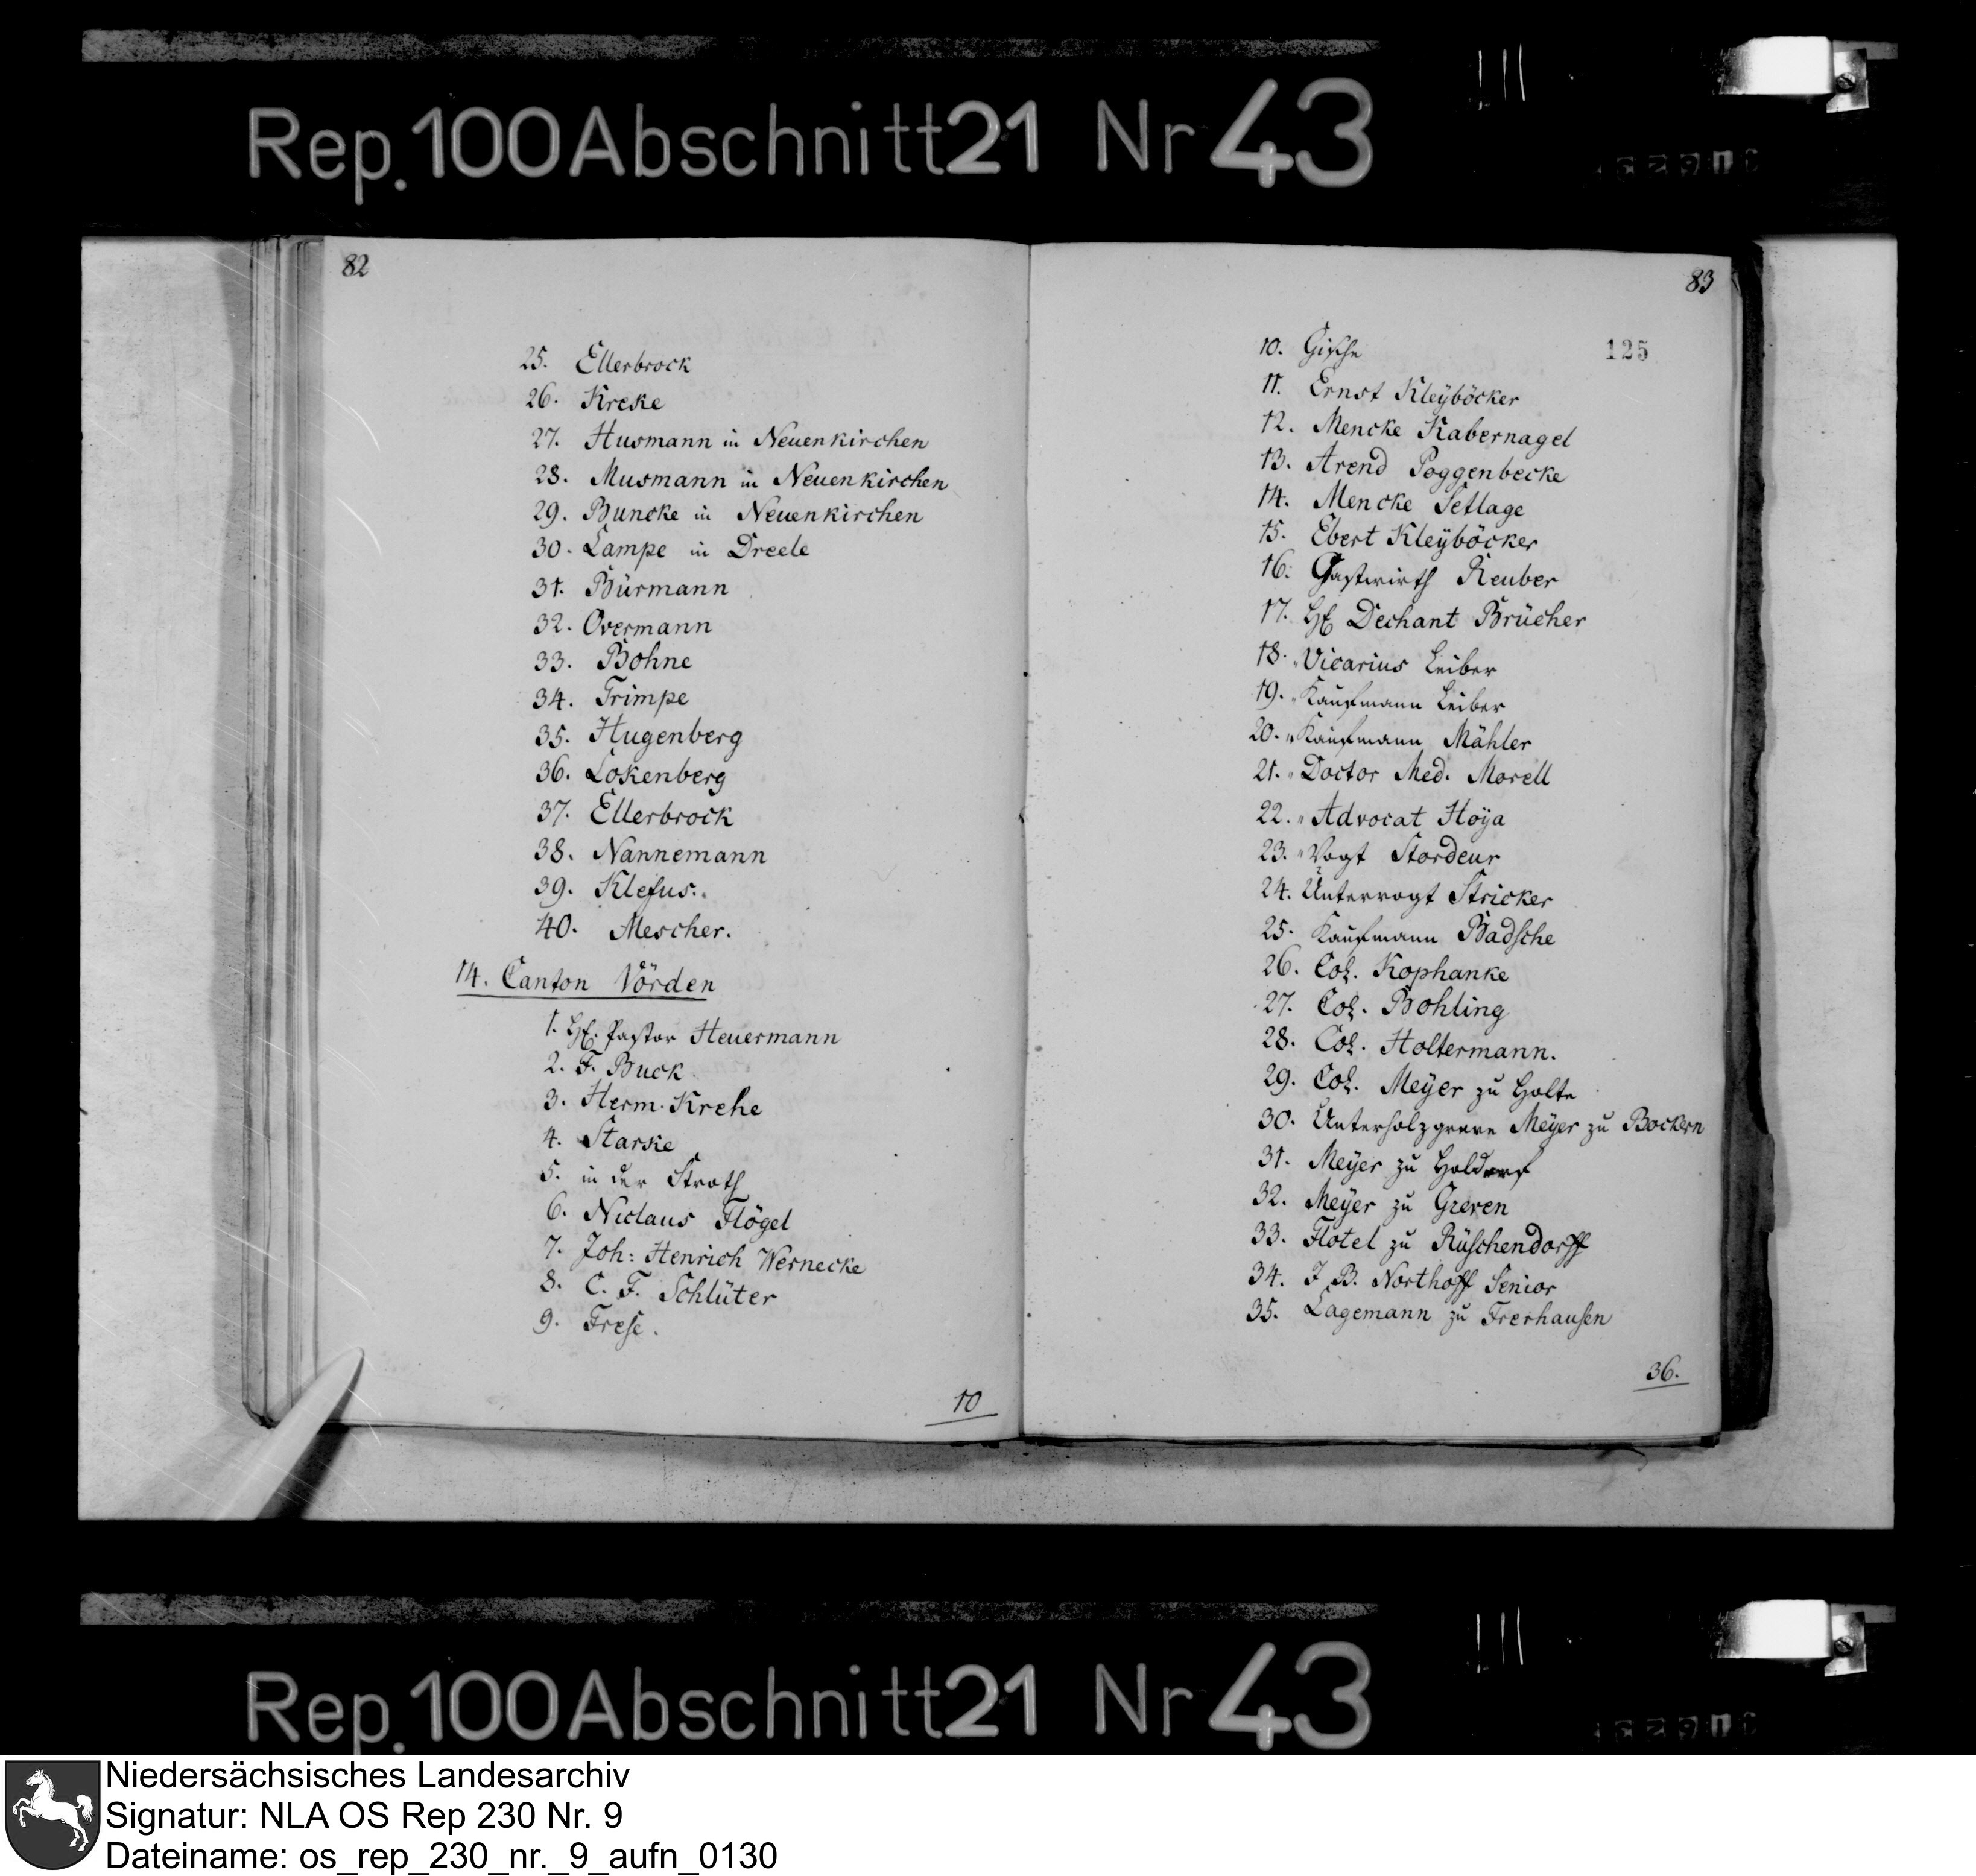 Rep. 100 Abschnitt 21 Nr 43
82
25. Ellerbrock
26. Kreke
27. Husmann in Neuenkirchen
28. Musmann in Neuenkirchen
29. Buncke in Neuenkirchen
30. Lampe in Dreele
31. Bürmann
32. Overmann
33. Bohne
34. Trimpe
35. Hugenberg
36. Lokenberg
37. Ellerbrock
38. Nannemann
39. Klefus.
40. Mescher.
14. Canton Vörden
1. H. Pastor Heuermann
2. F. Buck
3. Herm. Krehe
4. Starke
5. in der Stroth
6. Niclaus Flögel
7. Joh: Henrich Wernecke
8. C. F. Schlüter
9. Frese.
10
83
125
10. Gische
11. Ernst Kleyböcker
12. Mencke Kabernagel
13. Arend Poggenbecke
14. Mencke Setlage
15. Ebert Kleyböcker
16. Gastwirth Reuber
17. H. Dechant Brücher
18. " Vicarius Leiber
19. " Kaufmann Leiber
20. " Kaufmann Mähler
21. " Doctor Med. Morell
22. " Advocat Höya
23. " Vogt Stordeur
24. Untervogt Stricker
25. Kaufmann Badsche
26. Col. Kophanke
27. Col. Bohling
28. Col. Holtermann.
29. Col. Meÿer zu Holte
30. Unterholzgreve Meÿer zu Bockern
31. Meÿer zu Holdorf
32. Meÿer zu Greven
33. Flotel zu Rüschendorff
34. J B. Northoff Senior
35. Lagemann zu Frerhausen
36.
Rep. 100 Abschnitt 21 Nr 43
Niedersächsisches Landesarchiv
Signatur: NLA OS Rep 230 Nr. 9
Dateiname: os_rep_230_nr._9_aufn_0130